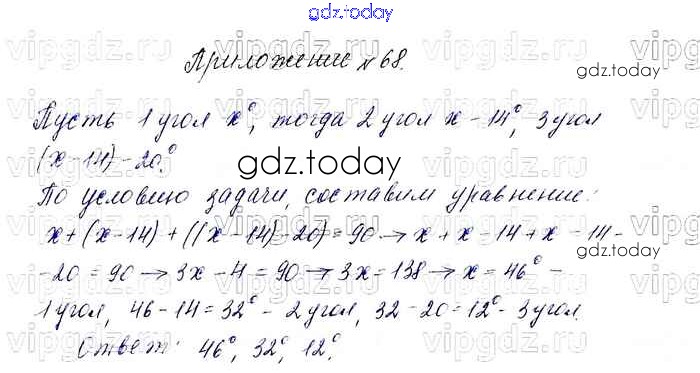 gdz.today
Приложение №68.
gdz.today
Пусть 1 угол x°, тогда 2 угол x - 14°, 3 угол
(x - 14) - 20°.
gdz.today
По условию задачи, составим уравнение:
x + (x - 14) + ((x - 14) - 20) = 90 → x + x - 14 + x - 14 -
- 20 = 90 → 3x - 4 = 90 → 3x = 138 → x = 46° -
1 угол, 46 - 14 = 32° - 2 угол, 32 - 20 = 12° - 3 угол.
Ответ: 46°, 32°, 12°.
vipgdz.ru